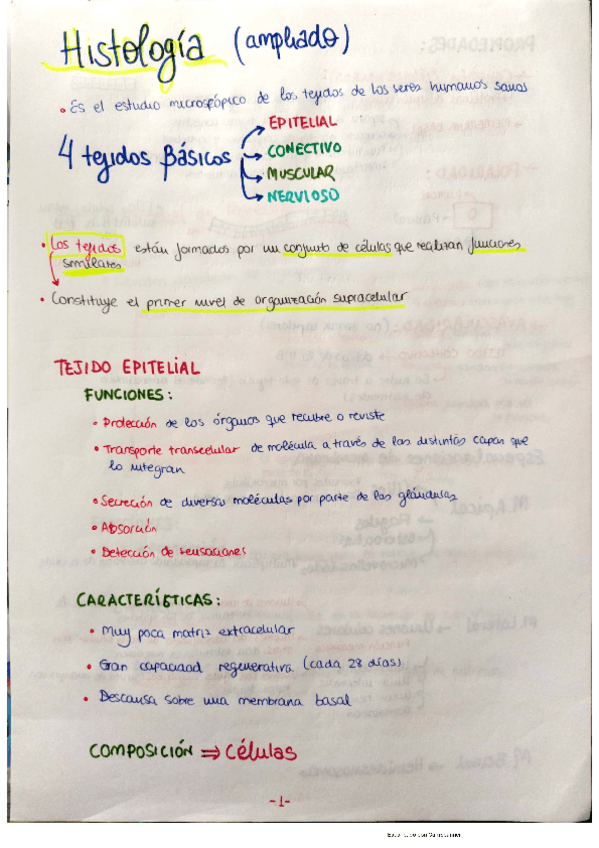 Histología (ampliado)
• Es el estudio microscópico de los tejidos de los seres humanos sanos
4 tejidos Básicos
EPITELIAL
CONECTIVO
MUSCULAR
NERVIOSO
• Los tejidos están formados por un conjunto de células que realizan funciones
similares
• Constituye el primer nivel de organización supracelular
TEJIDO EPITELIAL
FUNCIONES:
• Protección de los órganos que recubre o reviste
• Transporte transcelular de molécula a través de las distintas capas que
lo integran
• Secreción de diversas moléculas por parte de las glándulas
• Absorción
• Detección de sensaciones
CARACTERÍSTICAS:
• Muy poca matriz extracelular
• Gran capacidad regenerativa (cada 28 días)
• Descansa sobre una membrana basal
COMPOSICIÓN ⇒ Células
-1-